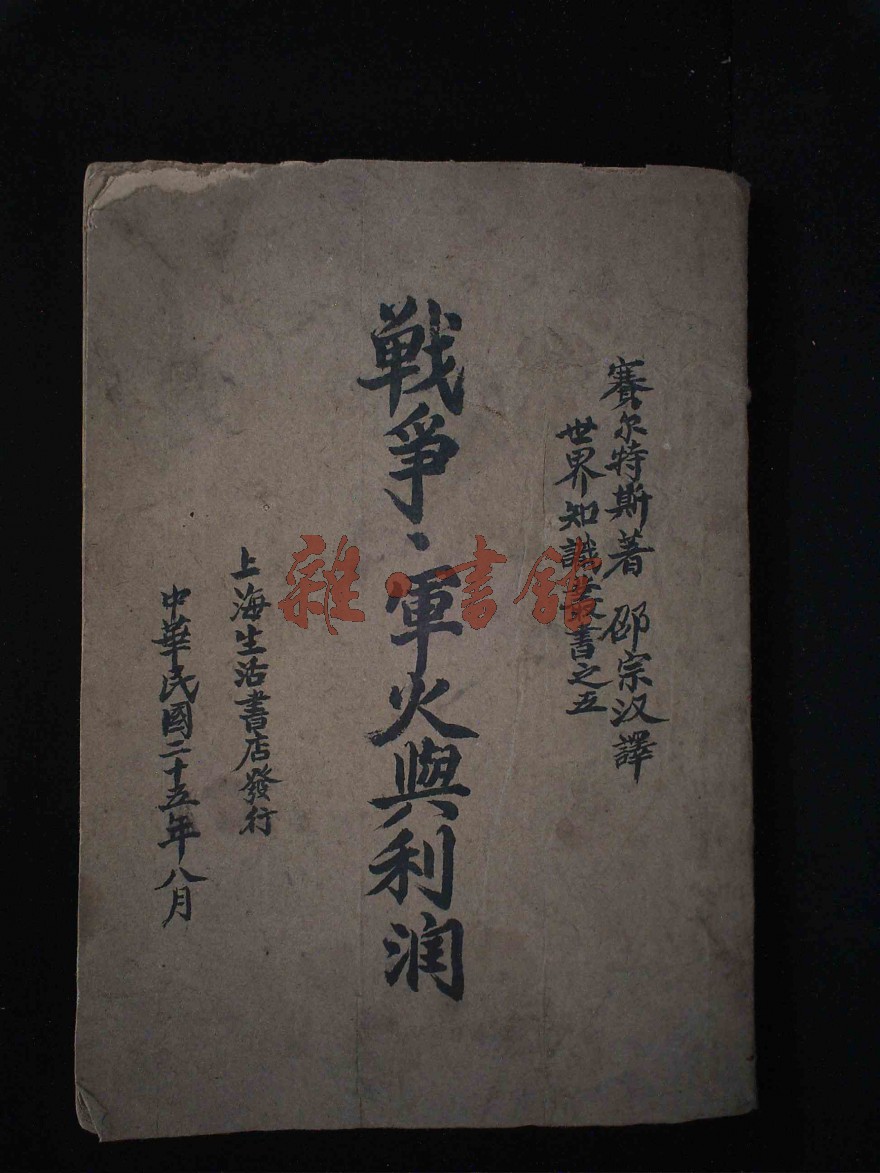 賽尔特斯著 邵宗汉譯
世界知識叢書之五
戦爭、軍火與利润
上海生活書店發行
中華民國二十五年八月
雜·書館